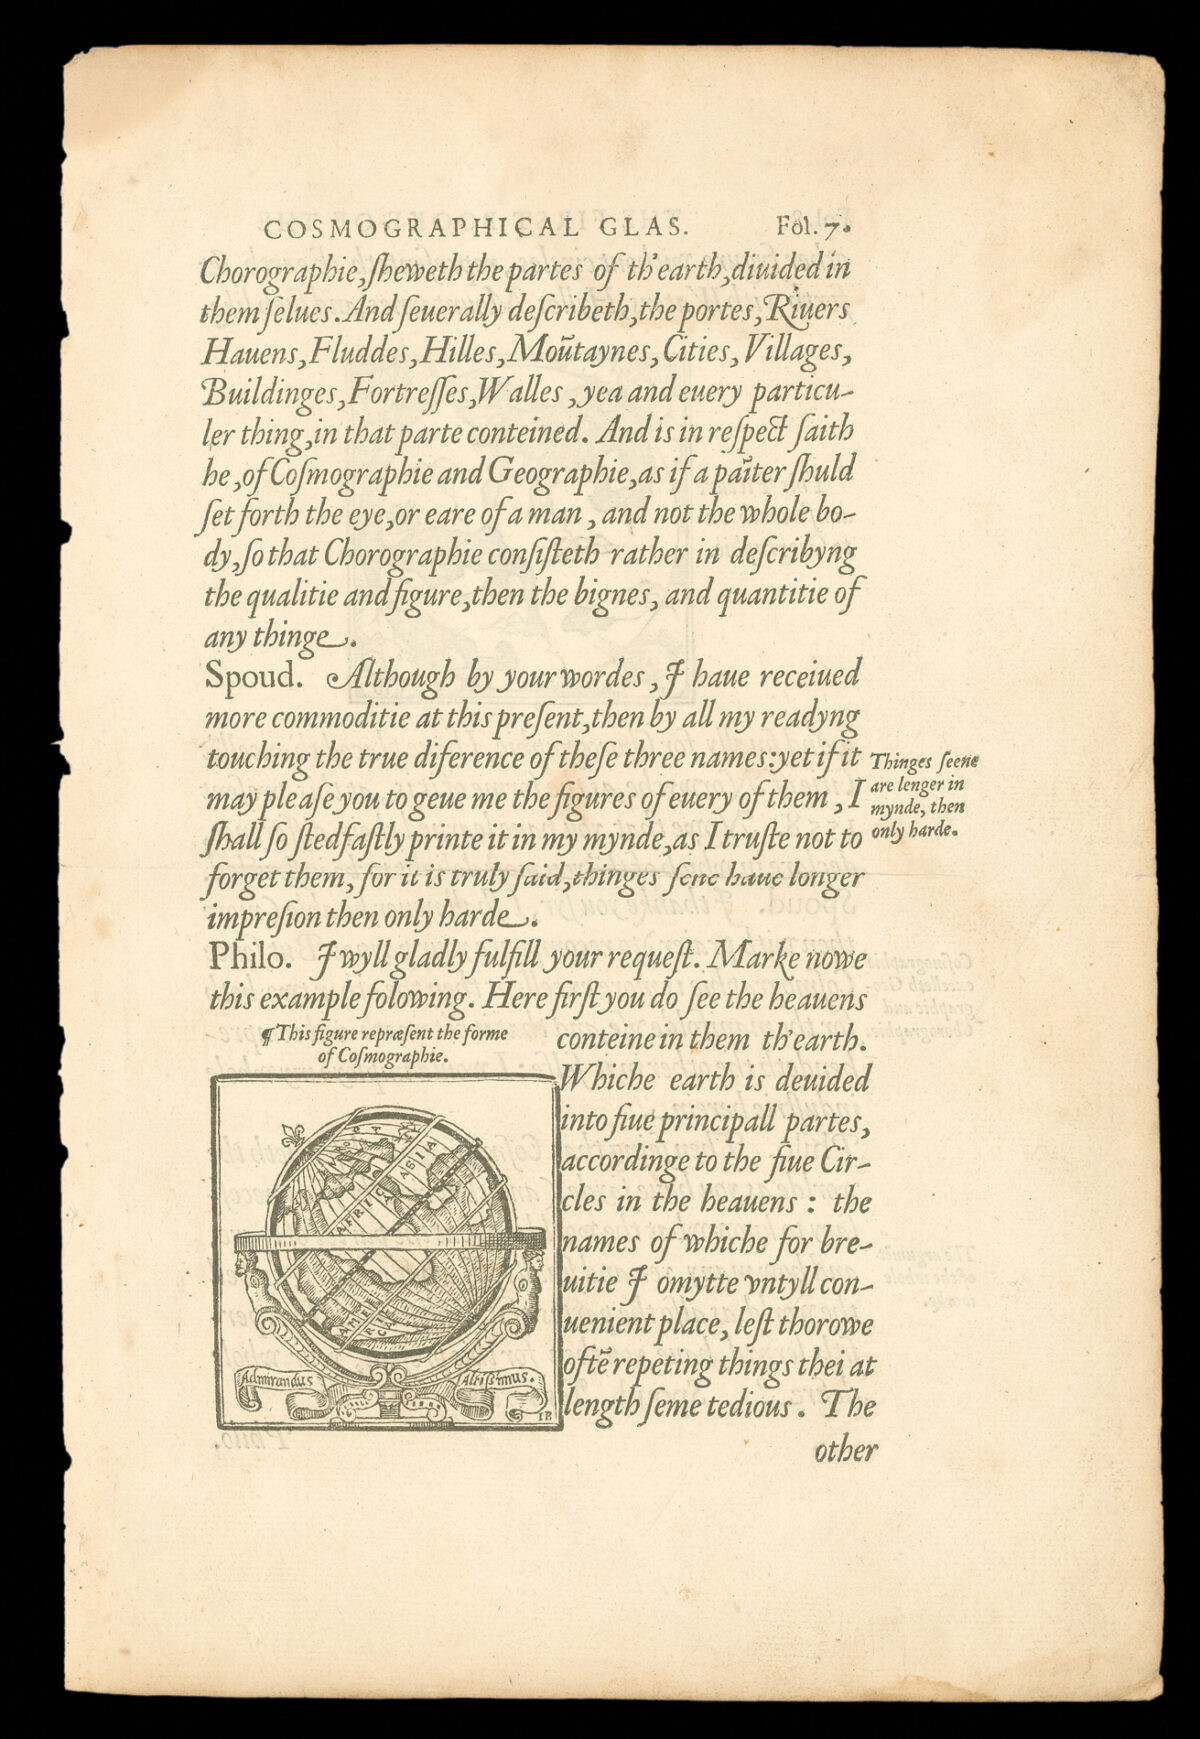 COSMOGRAPHICAL GLAS. Fol. 7.
Chorographie, ſheweth the partes of th'earth, diuided in
them ſelues. And ſeuerally deſcribeth, the portes, Riuers
Hauens, Fluddes, Hilles, Moūtaynes, Cities, Villages,
Buildinges, Fortreſſes, Walles, yea and euery particu-
ler thing, in that parte conteined. And is in reſpect ſaith
he, of Coſmographie and Geographie, as if a paīter ſhuld
ſet forth the eye, or eare of a man, and not the whole bo-
dy, ſo that Chorographie conſiſteth rather in deſcribyng
the qualitie and figure, then the bignes, and quantitie of
any thinge.
Spoud. Although by your wordes, I haue receiued
more commoditie at this preſent, then by all my readyng
touching the true diference of theſe three names: yet if it
may pleaſe you to geue me the figures of euery of them, I
ſhall ſo ſtedfaſtly printe it in my mynde, as I truſte not to
forget them, for it is truly ſaid, thinges ſene haue longer
impreſion then only harde.
Thinges ſeene
are lenger in
mynde, then
only harde.
Philo. I wyll gladly fulfill your requeſt. Marke nowe
this example folowing. Here firſt you do ſee the heauens
¶ This figure repræſent the forme
of Coſmographie.
conteine in them th'earth.
Whiche earth is deuided
into fiue principall partes,
accordinge to the fiue Cir-
cles in the heauens : the
names of whiche for bre-
uitie I omytte vntyll con-
uenient place, leſt thorowe
oftē repeting things thei at
length ſeme tedious. The
other
ASIA
AFRICA
AMERICA
Admirandus
Altißimus.
IB